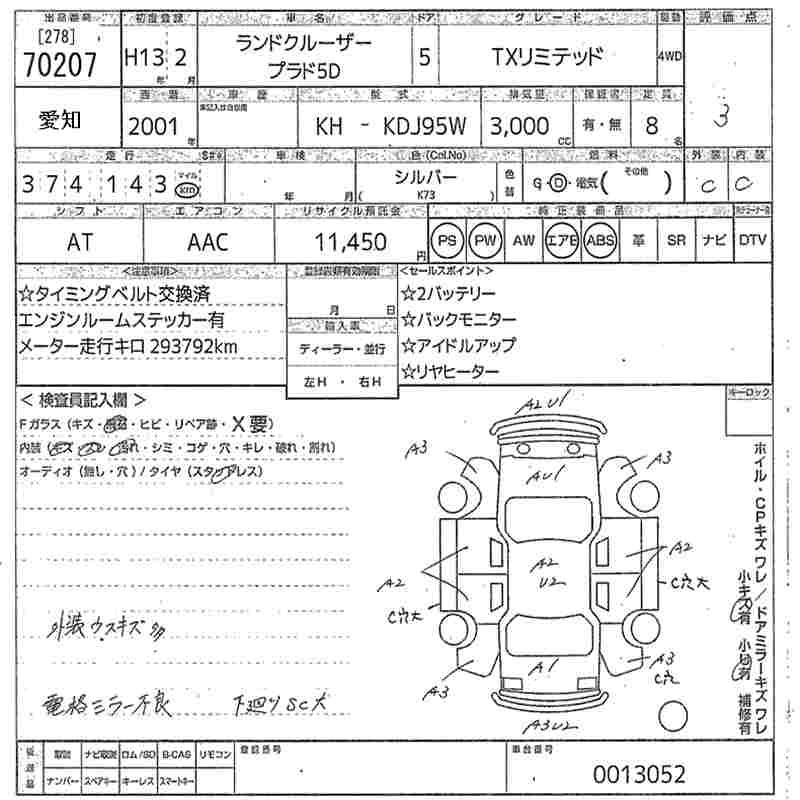 出品番号 初度登録 車名 ドア グレード 駆動 評価点
[278]
70207
H13 2
年 月
ランドクルーザー
プラド5D
5
TXリミテッド
4WD
3
愛知
西暦 車歴 型式 排気量 保証書 定員
2001 年
KH - KDJ95W
3,000 CC
有・無
8 名
走行 車検 色(Col.No) 燃料 外装 内装
374143
マイル
km
年 月
シルバー
( K73 )
色替
G・D・電気( その他 )
C C
シフト エアコン リサイクル預託金 純正装備品
AT
AAC
11,450 円
PS PW AW エアB ABS 革 SR ナビ DTV
<注意事項>
☆タイミングベルト交換済
エンジンルームステッカー有
メーター走行キロ 293792km
登録書類有効期限
月 日
輸入車
ディーラー・並行
左H ・ 右H
<セールスポイント>
☆2バッテリー
☆バックモニター
☆アイドルアップ
☆リヤヒーター
キーロック
< 検査員記入欄 >
Fガラス (キズ・・ヒビ・リペア跡・X要)
内装 (キズ・・・シミ・コゲ・穴・キレ・破れ・割れ)
オーディオ (無し・穴) / タイヤ (スタッドレス)
外装ウスキズ多
電格ミラー不良 下廻りSC大
A2 U1
A3
A3
AU1
A2
U2
A2
A2
C穴大
C穴大
A1
A3
A3
C穴
A3U2
ホイル・CPキズワレ/ドアミラーキズワレ
小キズ有 小ヒ有 補修有
後送品
取説 ナビ取説 ロム/SD B-CAS リモコン
ナンバー スペアキー キーレス スマートキー
登録番号
車台番号
0013052